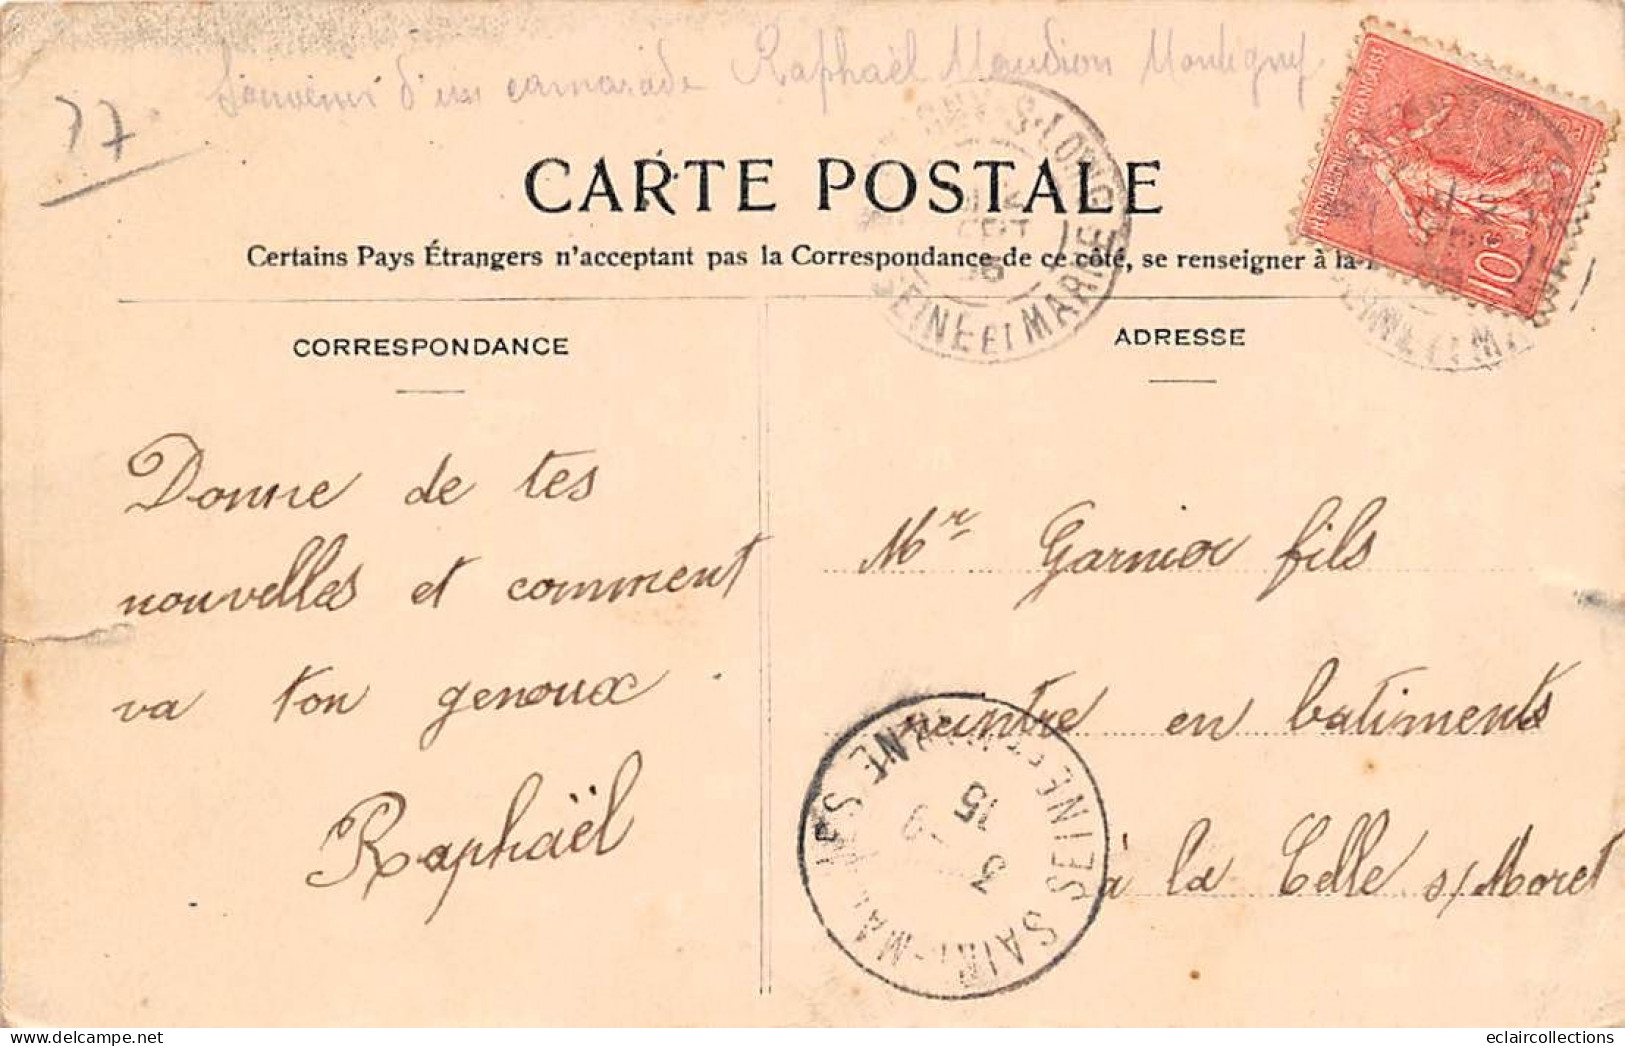 Souvenir d'un camarade Raphaël Maudion Montigny.
77
CARTE POSTALE
Certains Pays Étrangers n'acceptant pas la Correspondance de ce côté, se renseigner à la
CORRESPONDANCE
ADRESSE
RÉPUBLIQUE FRANÇAISE
10c
S-LOING
SEINE ET MARNE
SEINE ET MA
Donne de tes
nouvelles et comment
va ton genoux
Raphaël
Mr Garnier fils
peintre en batiments
à la Celle s/Moret
SAINT-MAMMES SEINE ET MARNE
15
3
9
eclaircollections